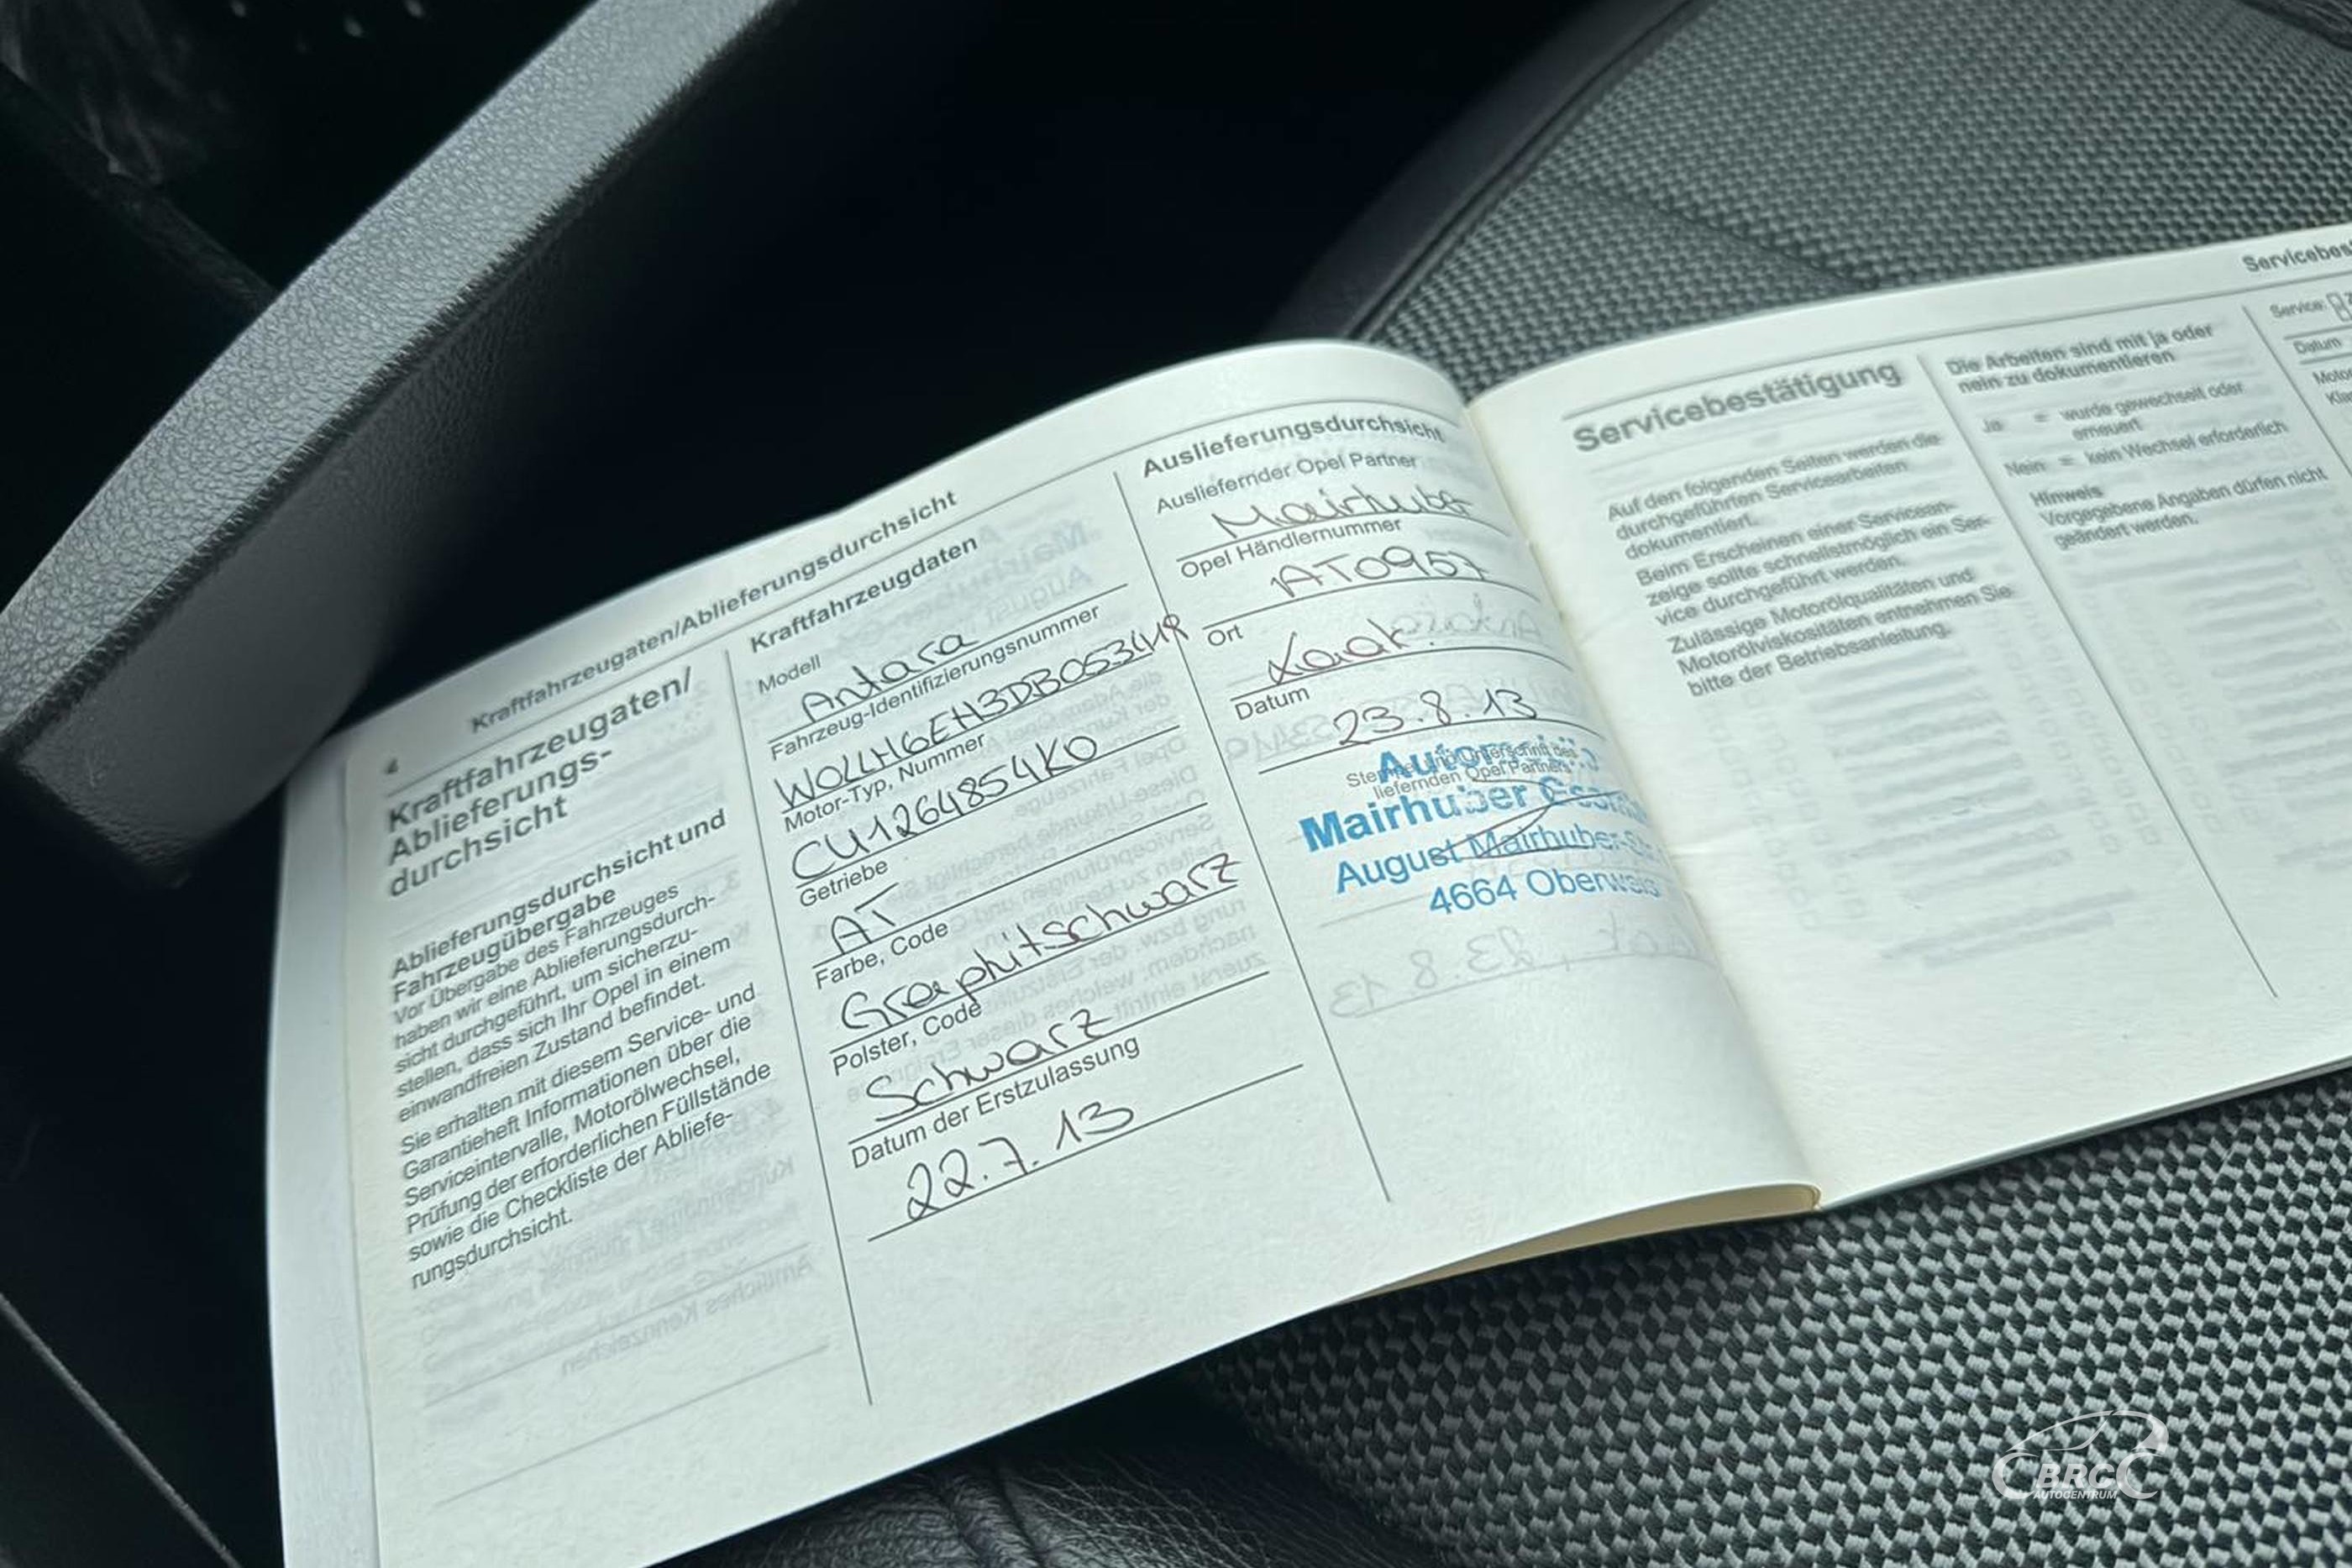 4
Kraftfahrzeugaten/Ablieferungsdurchsicht
Kraftfahrzeugaten/
Ablieferungs-
durchsicht
Ablieferungsdurchsicht und
Fahrzeugübergabe
Vor Übergabe des Fahrzeuges
haben wir eine Ablieferungsdurch-
sicht durchgeführt, um sicherzu-
stellen, dass sich Ihr Opel in einem
einwandfreien Zustand befindet.
Sie erhalten mit diesem Service- und
Garantieheft Informationen über die
Serviceintervalle, Motorölwechsel,
Prüfung der erforderlichen Füllstände
sowie die Checkliste der Abliefe-
rungsdurchsicht.
Kraftfahrzeugdaten
Modell
Antara
Fahrzeug-Identifizierungsnummer
Motor-Typ, Nummer
CU12648541K0
Getriebe
AT
Farbe, Code
Graphitschwarz
Polster, Code
Schwarz
Datum der Erstzulassung
22.7.13
Auslieferungsdurchsicht
Ausliefernder Opel Partner
Mairhuber
Opel Händlernummer
AT0957
Ort
Datum
23.8.13
Mairhuber
August Mairhuber-
4664 Oberweis
Servicebestätigung
Auf den folgenden Seiten werden die
durchgeführten Servicearbeiten
dokumentiert.
Beim Erscheinen einer Servicean-
zeige sollte schnellstmöglich ein Ser-
vice durchgeführt werden.
Zulässige Motorölqualitäten und
Motorölviskositäten entnehmen Sie
bitte der Betriebsanleitung.
Die Arbeiten sind mit ja oder
nein zu dokumentieren
Ja = wurde gewechselt oder
erneuert
Nein = kein Wechsel erforderlich
Hinweis
Vorgegebene Angaben dürfen nicht
geändert werden.
Service:
Datum
BRC
AUTOCENTRUM